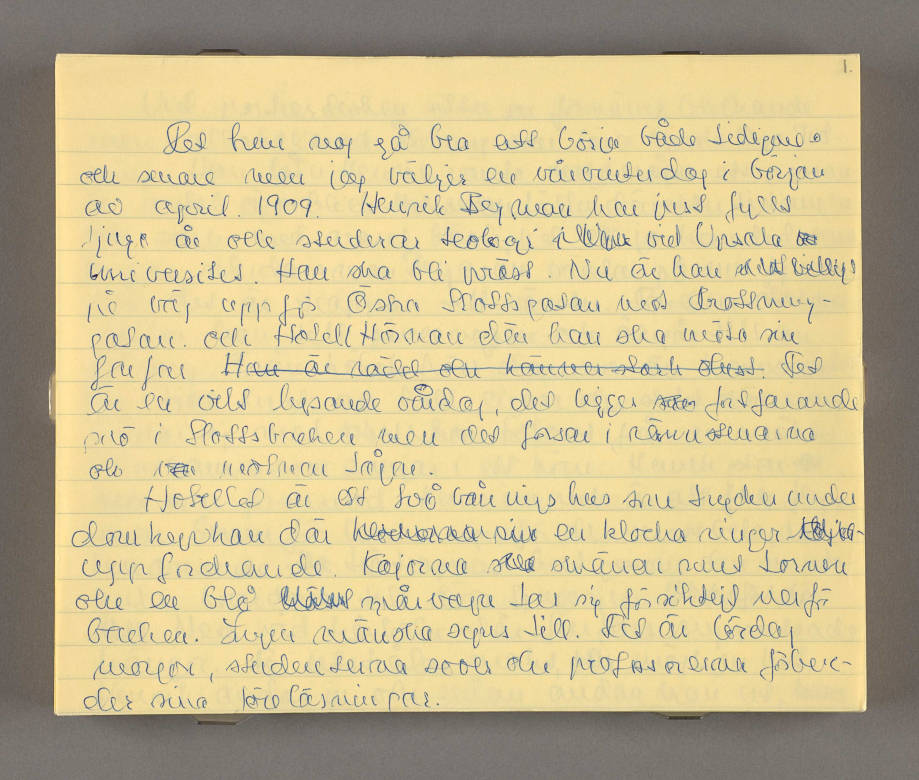 1.
Det kan nog gå bra att börja både tidigare
och senare men jag väljer en vårvinterdag i början
av april. 1909. Henrik Bergman har just fyllt
tjugo år och studerar teologi vid Upsala
universitet. Han ska bli präst. Nu är han
på väg uppför Östra Slottsgatan mot Drottning-
gatan. och Hotell Hörnan där han ska möta sin
farfar. Han är rädd och känner stark olust. Det
är en vilt lysande vårdag, det ligger fortfarande
snö i Slottsbacken men det forsar i rännstenarna
och molnen tågar.
Hotellet är ett två vånings hus som trycker under
domkyrkan där en klocka ringer
uppfordrande. Kajorna skränar runt tornen
och en blå spårvagn tar sig försiktigt nerför
backen. Ingen människa synes till. Det är lördag
morgon, studenterna sover och professorerna förber-
der sina föreläsningar.